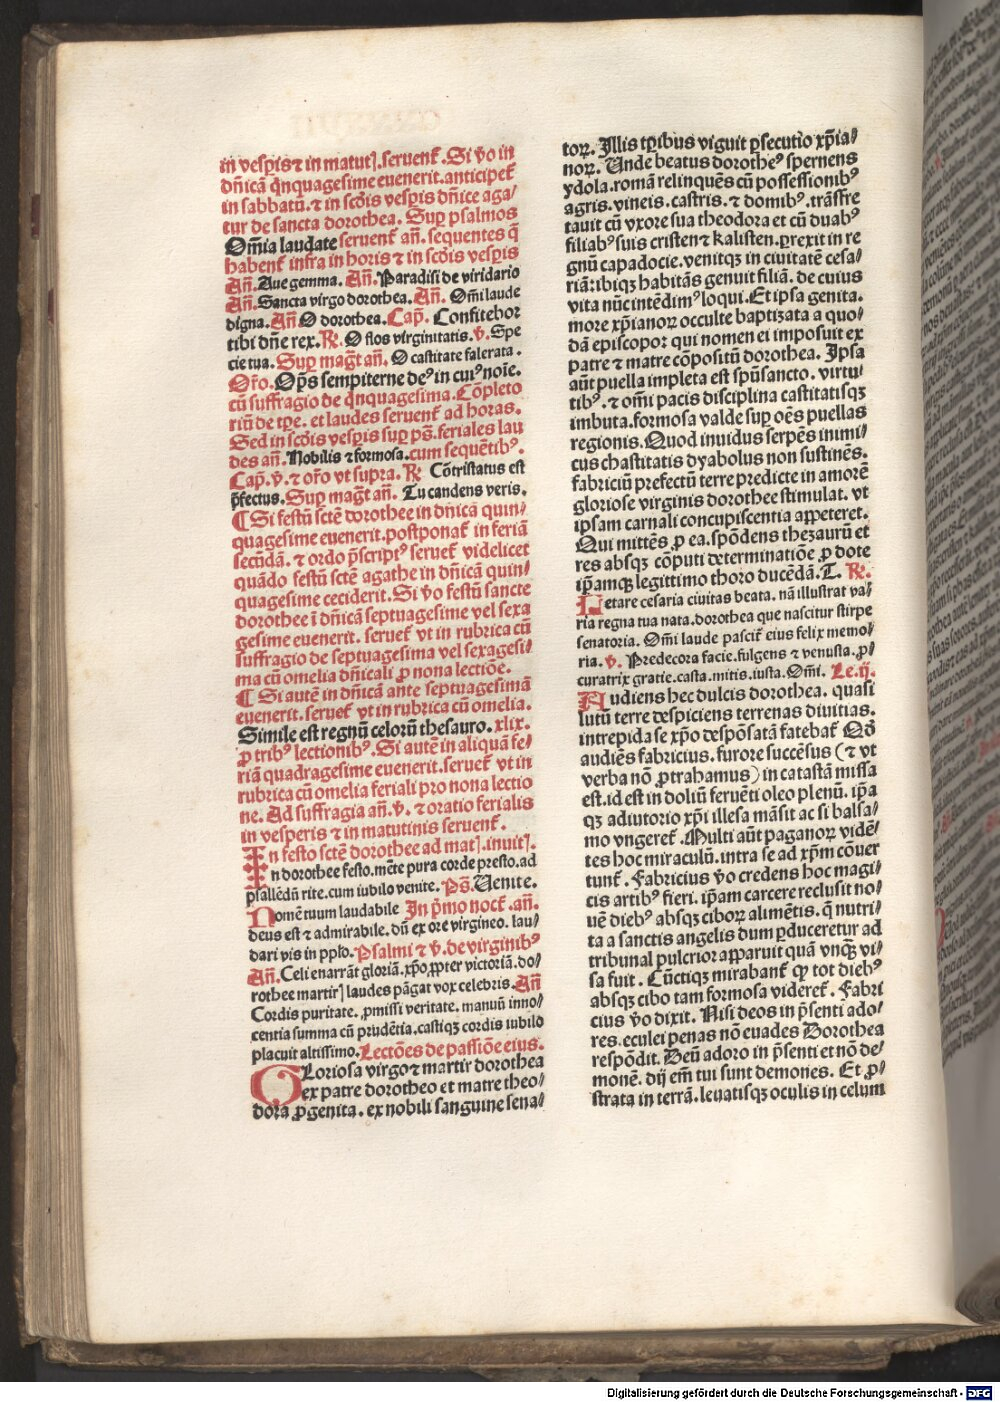 in vesp̄is ⁊ in matutꝭ. seruent᷑. Si v̄o in
dn̄ica q̄nquagesime euenerit. anticipet᷑
in sabbatū. ⁊ in scd̄is vesp̄is dn̄ice aga/
tur de sancta dorothea. Suꝑ psalmos
Om̄ia laudate seruent᷑ an̄. sequentes q̄
habent᷑ infra in horis ⁊ in scd̄is vesp̄is
An̄. Aue gemma. An̄. Paradisi de viridario
An̄. Sancta virgo dorothea. An̄. Om̄i laude
digna. An̄ O dorothea. Cap̄. Confitebor
tibi dn̄e rex. R̄. O flos virginitatis. v̄. Spe
cie tua. Suꝑ maḡt an̄. O castitate falerata.
Or̄o. Op̄s sempiterne deꝰ in cuiꝰ noīe.
cū suffragio de q̄nquagesima. Cōpleto
riū de tp̄e. et laudes seruent᷑ ad horas.
Sed in scd̄is vesp̄is suꝑ ps̄. feriales lau
des an̄. Nobilis ⁊ formosa. cum sequētibꝰ.
Cap̄. v̄. ⁊ or̄o vt supra. R̄. Cōtristatus est
p̄fectus. Suꝑ maḡt an̄. Tu candens veris.
¶ Si festū sctē dorothee in dn̄icā quin/
quagesime euenerit. postponat᷑ in feriā
secūdā. ⁊ ordo p̄scriptꝰ seruet᷑ videlicet
quādo festū sctē agathe in dn̄icā quin/
quagesime ceciderit. Si v̄o festū sancte
dorothee ī dn̄icā septuagesime vel sexa
gesime euenerit. seruet᷑ vt in rubrica cū
suffragio de septuagesima vel sexagesi/
ma cū omelia dn̄icali ꝓ nona lectiōe.
¶ Si autē in dn̄icā ante septuagesimā
euenerit. seruet᷑ vt in rubrica cū omelia.
Simile est regnū celorū thesauro. xlix.
ꝓ tribꝰ lectionibꝰ. Si autē in aliquā fe/
riā quadragesime euenerit. seruet᷑ vt in
rubrica cū omelia feriali pro nona lectio
ne. Ad suffragia an̄. v̄. ⁊ oratio ferialis
in vesperis ⁊ in matutinis seruent᷑.
In festo sctē dorothee ad matꝭ. inuitꝭ.
In dorothee festo. mēte pura corde presto. ad
psallēdū rite. cum iubilo venite. Ps̄. Uenite.
Nomē tuum laudabile In p̄mo noct᷑. an̄.
deus est ⁊ admirabile. dū ex ore virgineo. lau/
dari vis in pplo. Psalmi ⁊ v̄. de virginibꝰ
An̄. Celi enarrāt gloriā. xp̄o ꝓpter victoriā. do/
rothee martirꝭ laudes pāgat vox celebris. An̄
Cordis puritate. ꝓmissi veritate. manuū inno/
centia summa cū prudētia. castiqꝫ cordis iubilo
placuit altissimo. Lectōes de passiōe eius.
Gloriosa virgo ⁊ martir dorothea
ex patre dorotheo et matre theo/
dora ꝓgenita. ex nobili sanguine sena/
toꝝ. Illis tꝑibus viguit ꝑsecutio xp̄ia/
noꝝ. Unde beatus dorotheꝰ spernens
ydola. romā relinquēs cū possessionibꝰ
agris. vineis. castris. ⁊ domibꝰ. trāsfre
tauit cū vxore sua theodora et cū duabꝰ
filiabꝰ suis cristen ⁊ kalisten. ꝑrexit in re
gnū capadocie. venitqꝫ in ciuitatē cesa/
riā: ibiqꝫ habitās genuit filiā. de cuius
vita nūc intēdimꝰ loqui. Et ipsa genita.
more xp̄ianoꝝ occulte baptizata a quo/
dā episcopoꝝ qui nomen ei imposuit ex
patre ⁊ matre cōpositū dorothea. Ipsa
aūt puella impleta est spū sancto. virtu/
tibꝰ. ⁊ om̄i pacis disciplina castitatisqꝫ
imbuta. formosa valde suꝑ oēs puellas
regionis. Quod inuidus serpēs inimi/
cus chastitatis dyabolus non sustinēs.
fabriciū prefectū terre predicte in amorē
gloriose virginis dorothee stimulat. vt
ipsam carnali concupiscentia appeteret.
Qui mittēs ꝓ ea. spōdens thezaurū et
res absqꝫ cōputi determinatiōe ꝓ dote
ip̄amqꝫ legittimo thoro ducēdā. T. R̄.
Letare cesaria ciuitas beata. nā illustrat va/
ria regna tua nata. dorothea que nascitur stirpe
senatoria. Om̄i laude pascit᷑ eius felix memo/
ria. v̄. Predecora facie. fulgens ⁊ venusta. ꝓ/
curatrix gratie. casta. mitis. iusta. Om̄i. Le. ij.
Audiens hec dulcis dorothea. quasi
lutū terre despiciens terrenas diuitias.
intrepida se xp̄o despōsatā fatebat᷑ Qd̄
audiēs fabricius. furore succēsus (⁊ vt
verba nō ꝓtrahamus) in catastā missa
est. id est in doliū feruēti oleo plenū. ip̄a
qꝫ adiutorio xp̄i illesa māsit ac si balsa/
mo vngeret᷑. Multi aūt paganoꝝ vidē/
tes hoc miraculū. intra se ad xp̄m cōuer
tunt᷑. Fabricius v̄o credens hoc magi/
cis artibꝰ fieri. ip̄am carcere reclusit no/
uē diebꝰ absqꝫ ciboꝝ alimētis. q̄ nutri/
ta a sanctis angelis dum ꝑduceretur ad
tribunal pulcrior apparuit quā vnqꝫ vi/
sa fuit. Cūctiqꝫ mirabant᷑ qꝫ tot diebꝰ
absqꝫ cibo tam formosa videret᷑. Fabri
cius v̄o dixit. Nisi deos in p̄senti ado/
res. eculei penas nō euades Dorothea
respōdit. Deū adoro in p̄senti et nō de/
monē. dij em̄ tui sunt demones. Et ꝓ/
strata in terrā. leuatisqꝫ oculis in celum
Digitalisierung gefördert durch die Deutsche Forschungsgemeinschaft - DFG